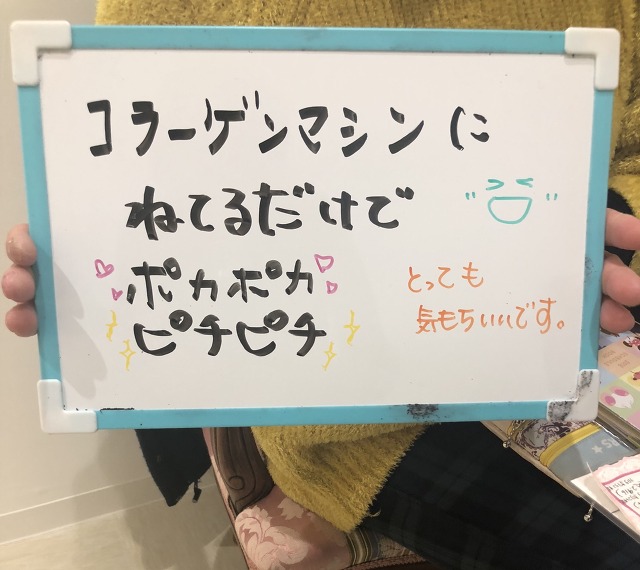 コラーゲンマシンに
ねてるだけで
ポカポカ
ピチピチ
とっても
気もちいいです。